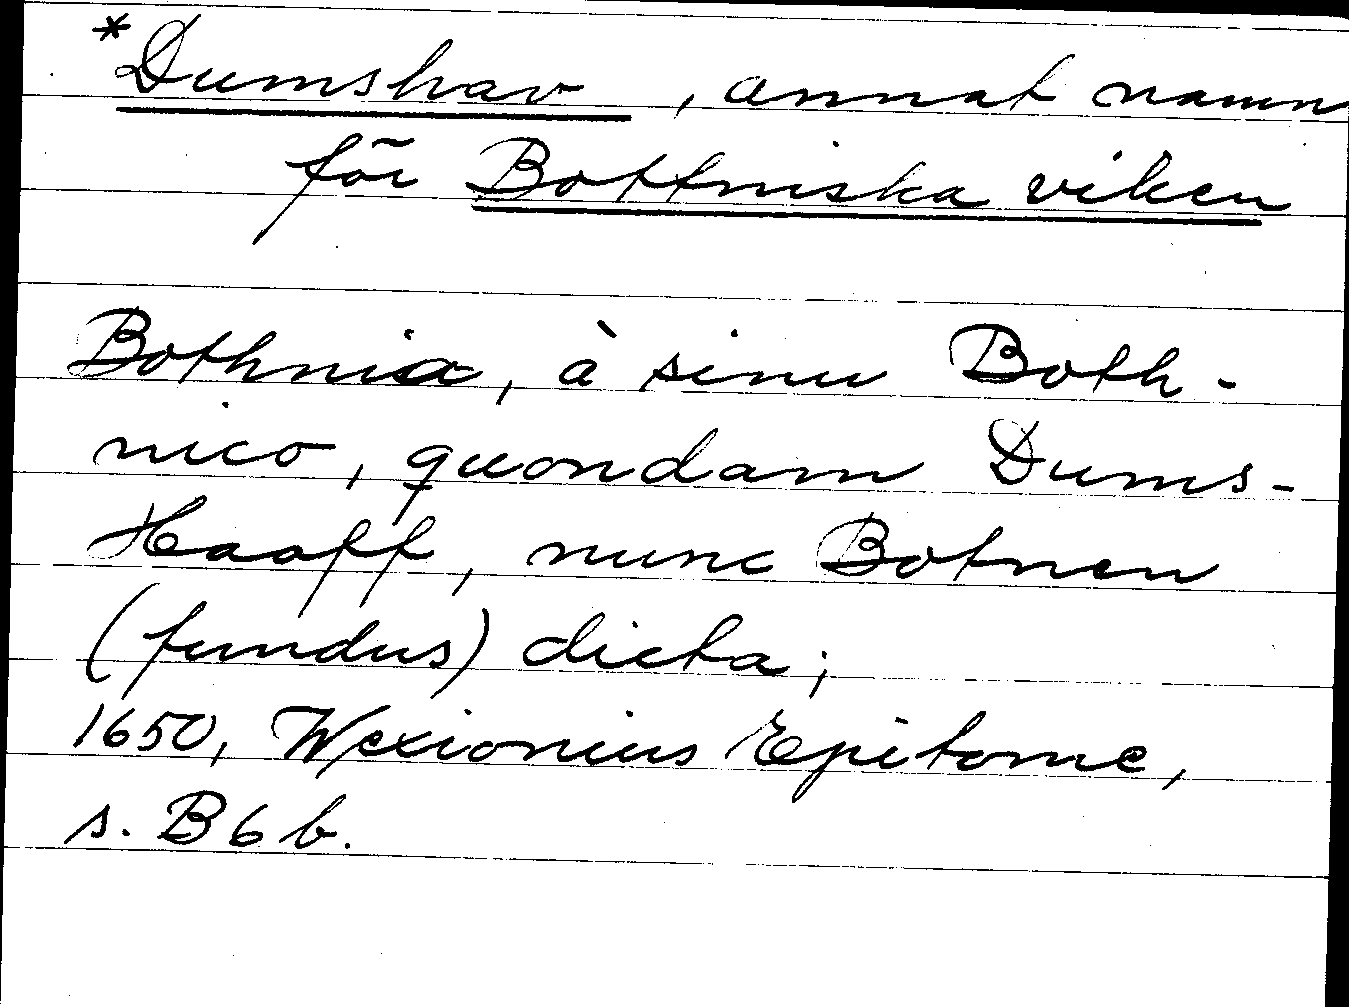 *Dumshav, annat namn
för Bottniska viken
Bothnia, à sinu Both-
nico, quondam Dums-
Haaff, nunc Botnen
(fundus) dicta;
1650, Wexionius Epitome,
s. B6b.